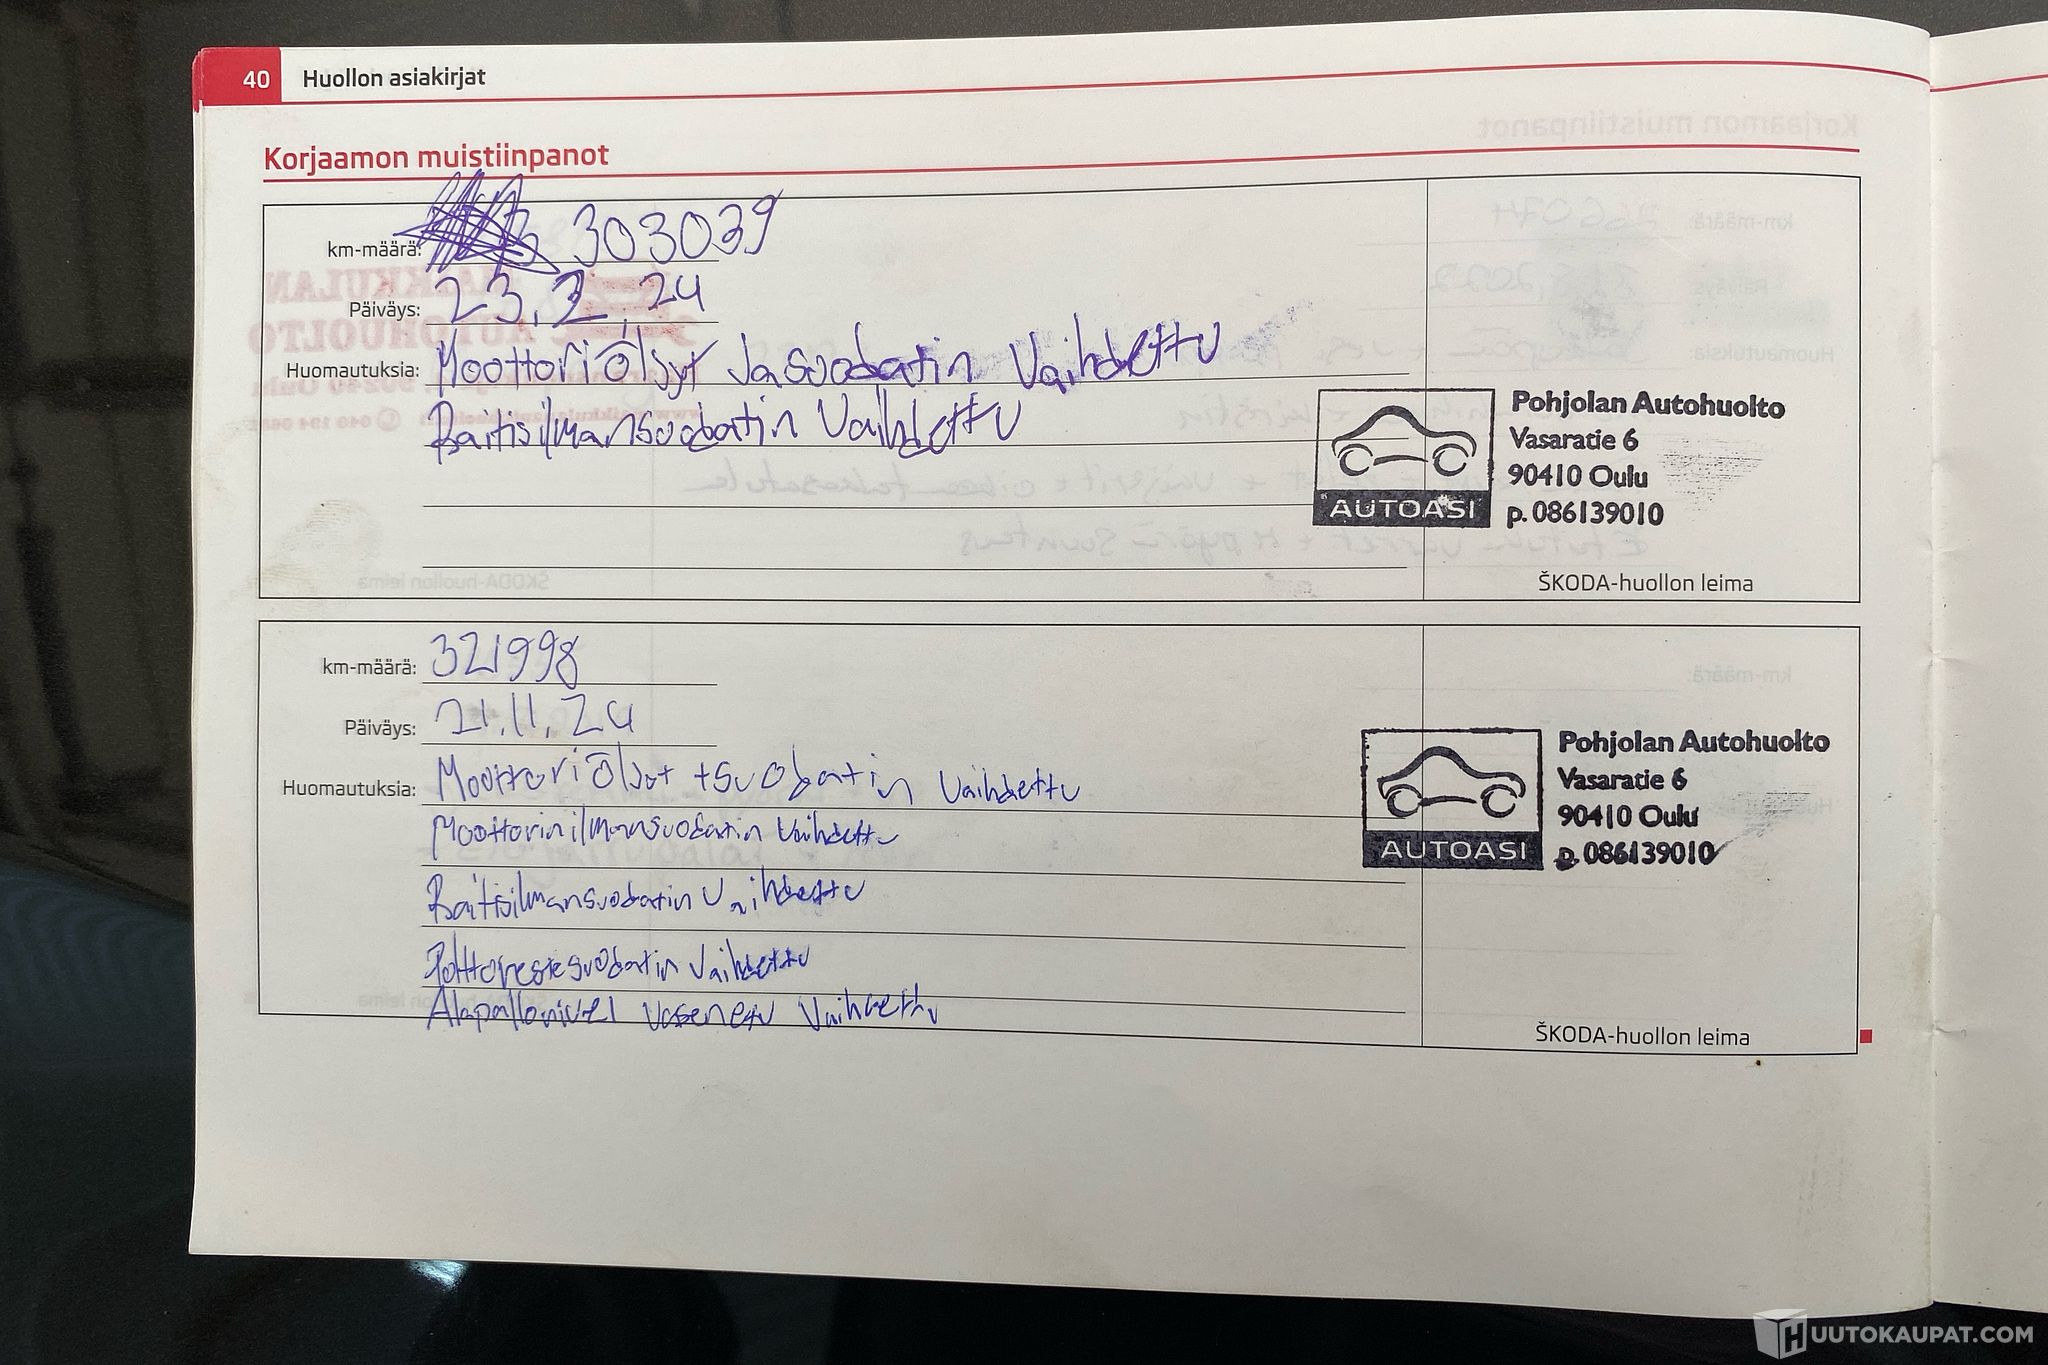 40 Huollon asiakirjat
Korjaamon muistiinpanot
km-määrä: 303039
Päiväys: 23.2.24
Huomautuksia: Moottoriöljyt ja suodatin vaihdettu
Raitisilmansuodatin vaihdettu
AUTOASI
Pohjolan Autohuolto
Vasaratie 6
90410 Oulu
p. 086139010
ŠKODA-huollon leima
km-määrä: 321998
Päiväys: 21.11.24
Huomautuksia: Moottoriöljyt + suodatin vaihdettu
Moottorinilmansuodatin vaihdettu
Raitisilmansuodatin vaihdettu
Polttonestesuodatin vaihdettu
Alapallonivel vasen etu vaihdettu
AUTOASI
Pohjolan Autohuolto
Vasaratie 6
90410 Oulu
p. 086139010
ŠKODA-huollon leima
HUUTOKAUPAT.COM